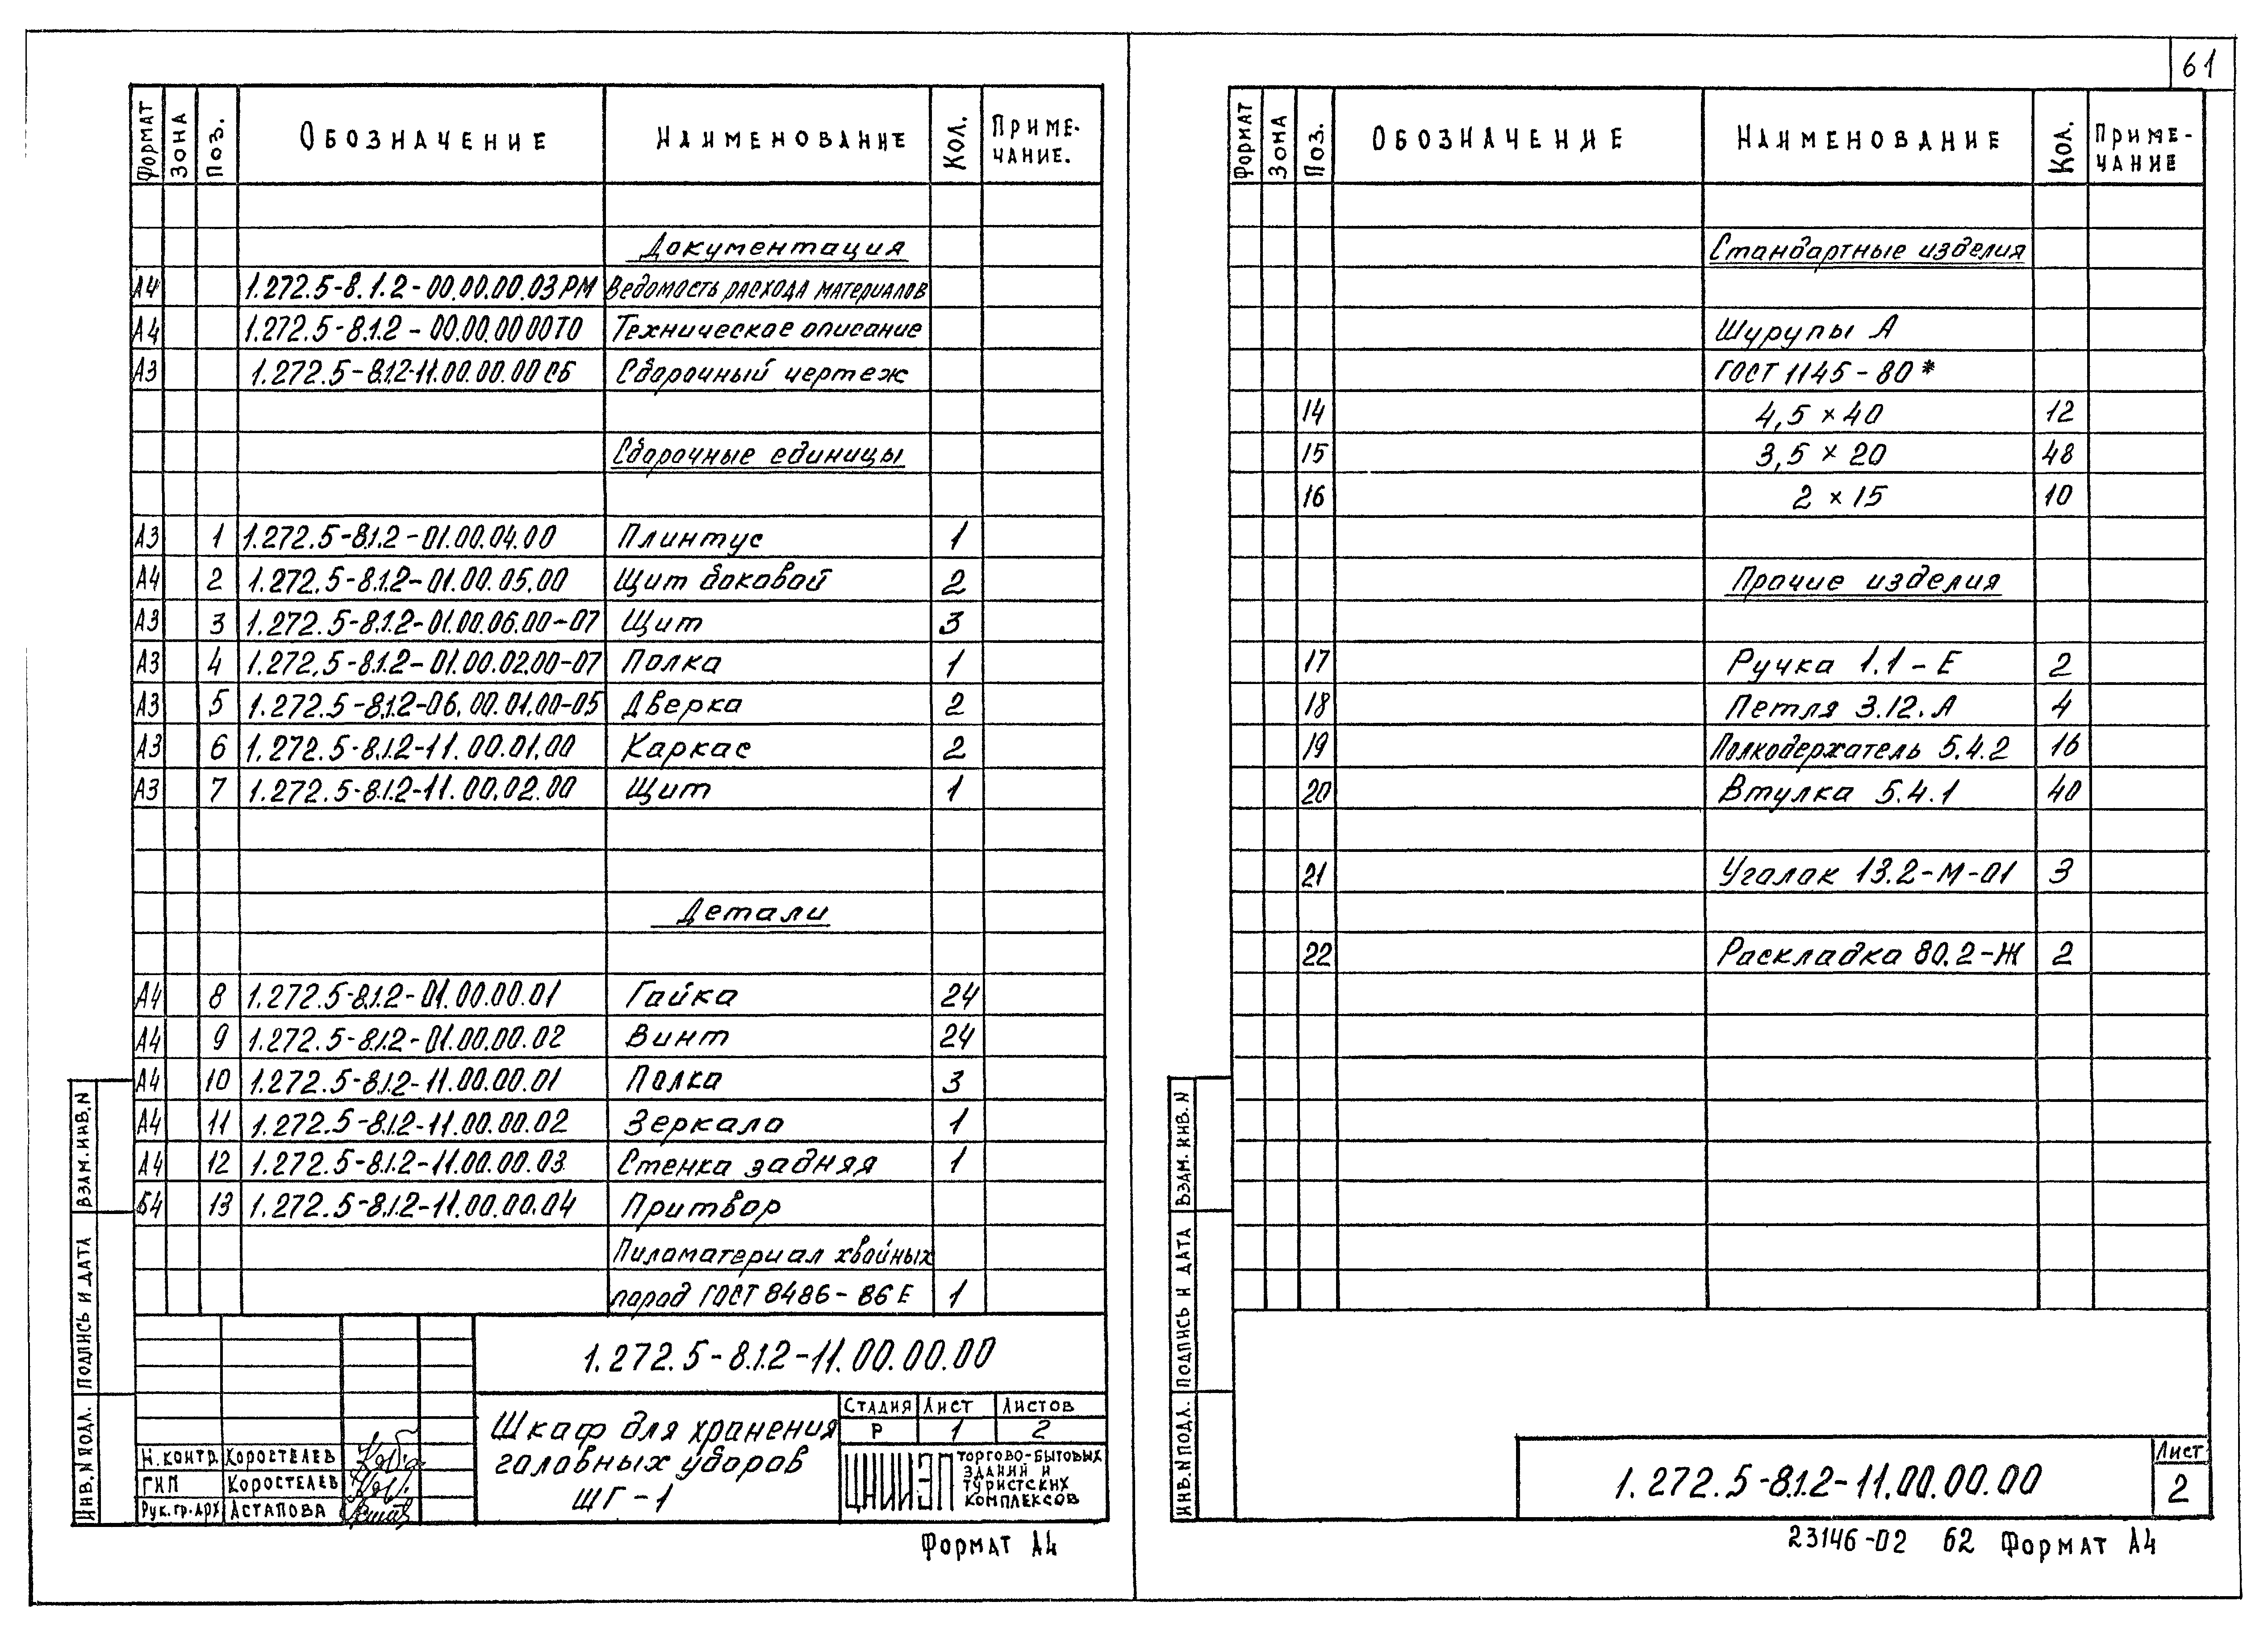 61
Формат Зона Поз. Обозначение Наименование Кол. Приме-
чание.
Документация
А4 1.272.5-8.1.2-00.00.00.03РМ Ведомость расхода материалов
А4 1.272.5-8.1.2-00.00.00 00ТО Техническое описание
А3 1.272.5-8.1.2-11.00.00.00 СБ Сборочный чертеж
Сборочные единицы
А3 1 1.272.5-8.1.2-01.00.04.00 Плинтус 1
А4 2 1.272.5-8.1.2-01.00.05.00 Щит боковой 2
А3 3 1.272.5-8.1.2-01.00.06.00-07 Щит 3
А3 4 1.272.5-8.1.2-01.00.02.00-07 Полка 1
А3 5 1.272.5-8.1.2-06.00.01.00-05 Дверка 2
А3 6 1.272.5-8.1.2-11.00.01.00 Каркас 2
А3 7 1.272.5-8.1.2-11.00.02.00 Щит 1
Детали
А4 8 1.272.5-8.1.2-01.00.00.01 Гайка 24
А4 9 1.272.5-8.1.2-01.00.00.02 Винт 24
А4 10 1.272.5-8.1.2-11.00.00.01 Полка 3
А4 11 1.272.5-8.1.2-11.00.00.02 Зеркало 1
А4 12 1.272.5-8.1.2-11.00.00.03 Стенка задняя 1
Б4 13 1.272.5-8.1.2-11.00.00.04 Притвор
Пиломатериал хвойных
пород ГОСТ 8486-86Е 1
Взам. инв. N
Подпись и дата
Инв. N подл.
1.272.5-8.1.2-11.00.00.00
Шкаф для хранения
головных уборов
ШГ-1
Стадия Лист Листов
Р 1 2
Н. контр. Коростелев
ГИП Коростелев
Рук. гр. арх Астапова
ЦНИИЭП торгово-бытовых
зданий и
туристских
комплексов
Формат А4
Формат Зона Поз. Обозначение Наименование Кол. Приме-
чание
Стандартные изделия
Шурупы А
ГОСТ 1145-80*
14 4,5 × 40 12
15 3,5 × 20 48
16 2 × 15 10
Прочие изделия
17 Ручка 1.1-Е 2
18 Петля 3.12.А 4
19 Полкодержатель 5.4.2 16
20 Втулка 5.4.1 40
21 Уголок 13.2-М-01 3
22 Раскладка 80.2-Ж 2
Взам. инв. N
Подпись и дата
Инв. N подл.
1.272.5-8.1.2-11.00.00.00
Лист
2
23146-02 62 Формат А4